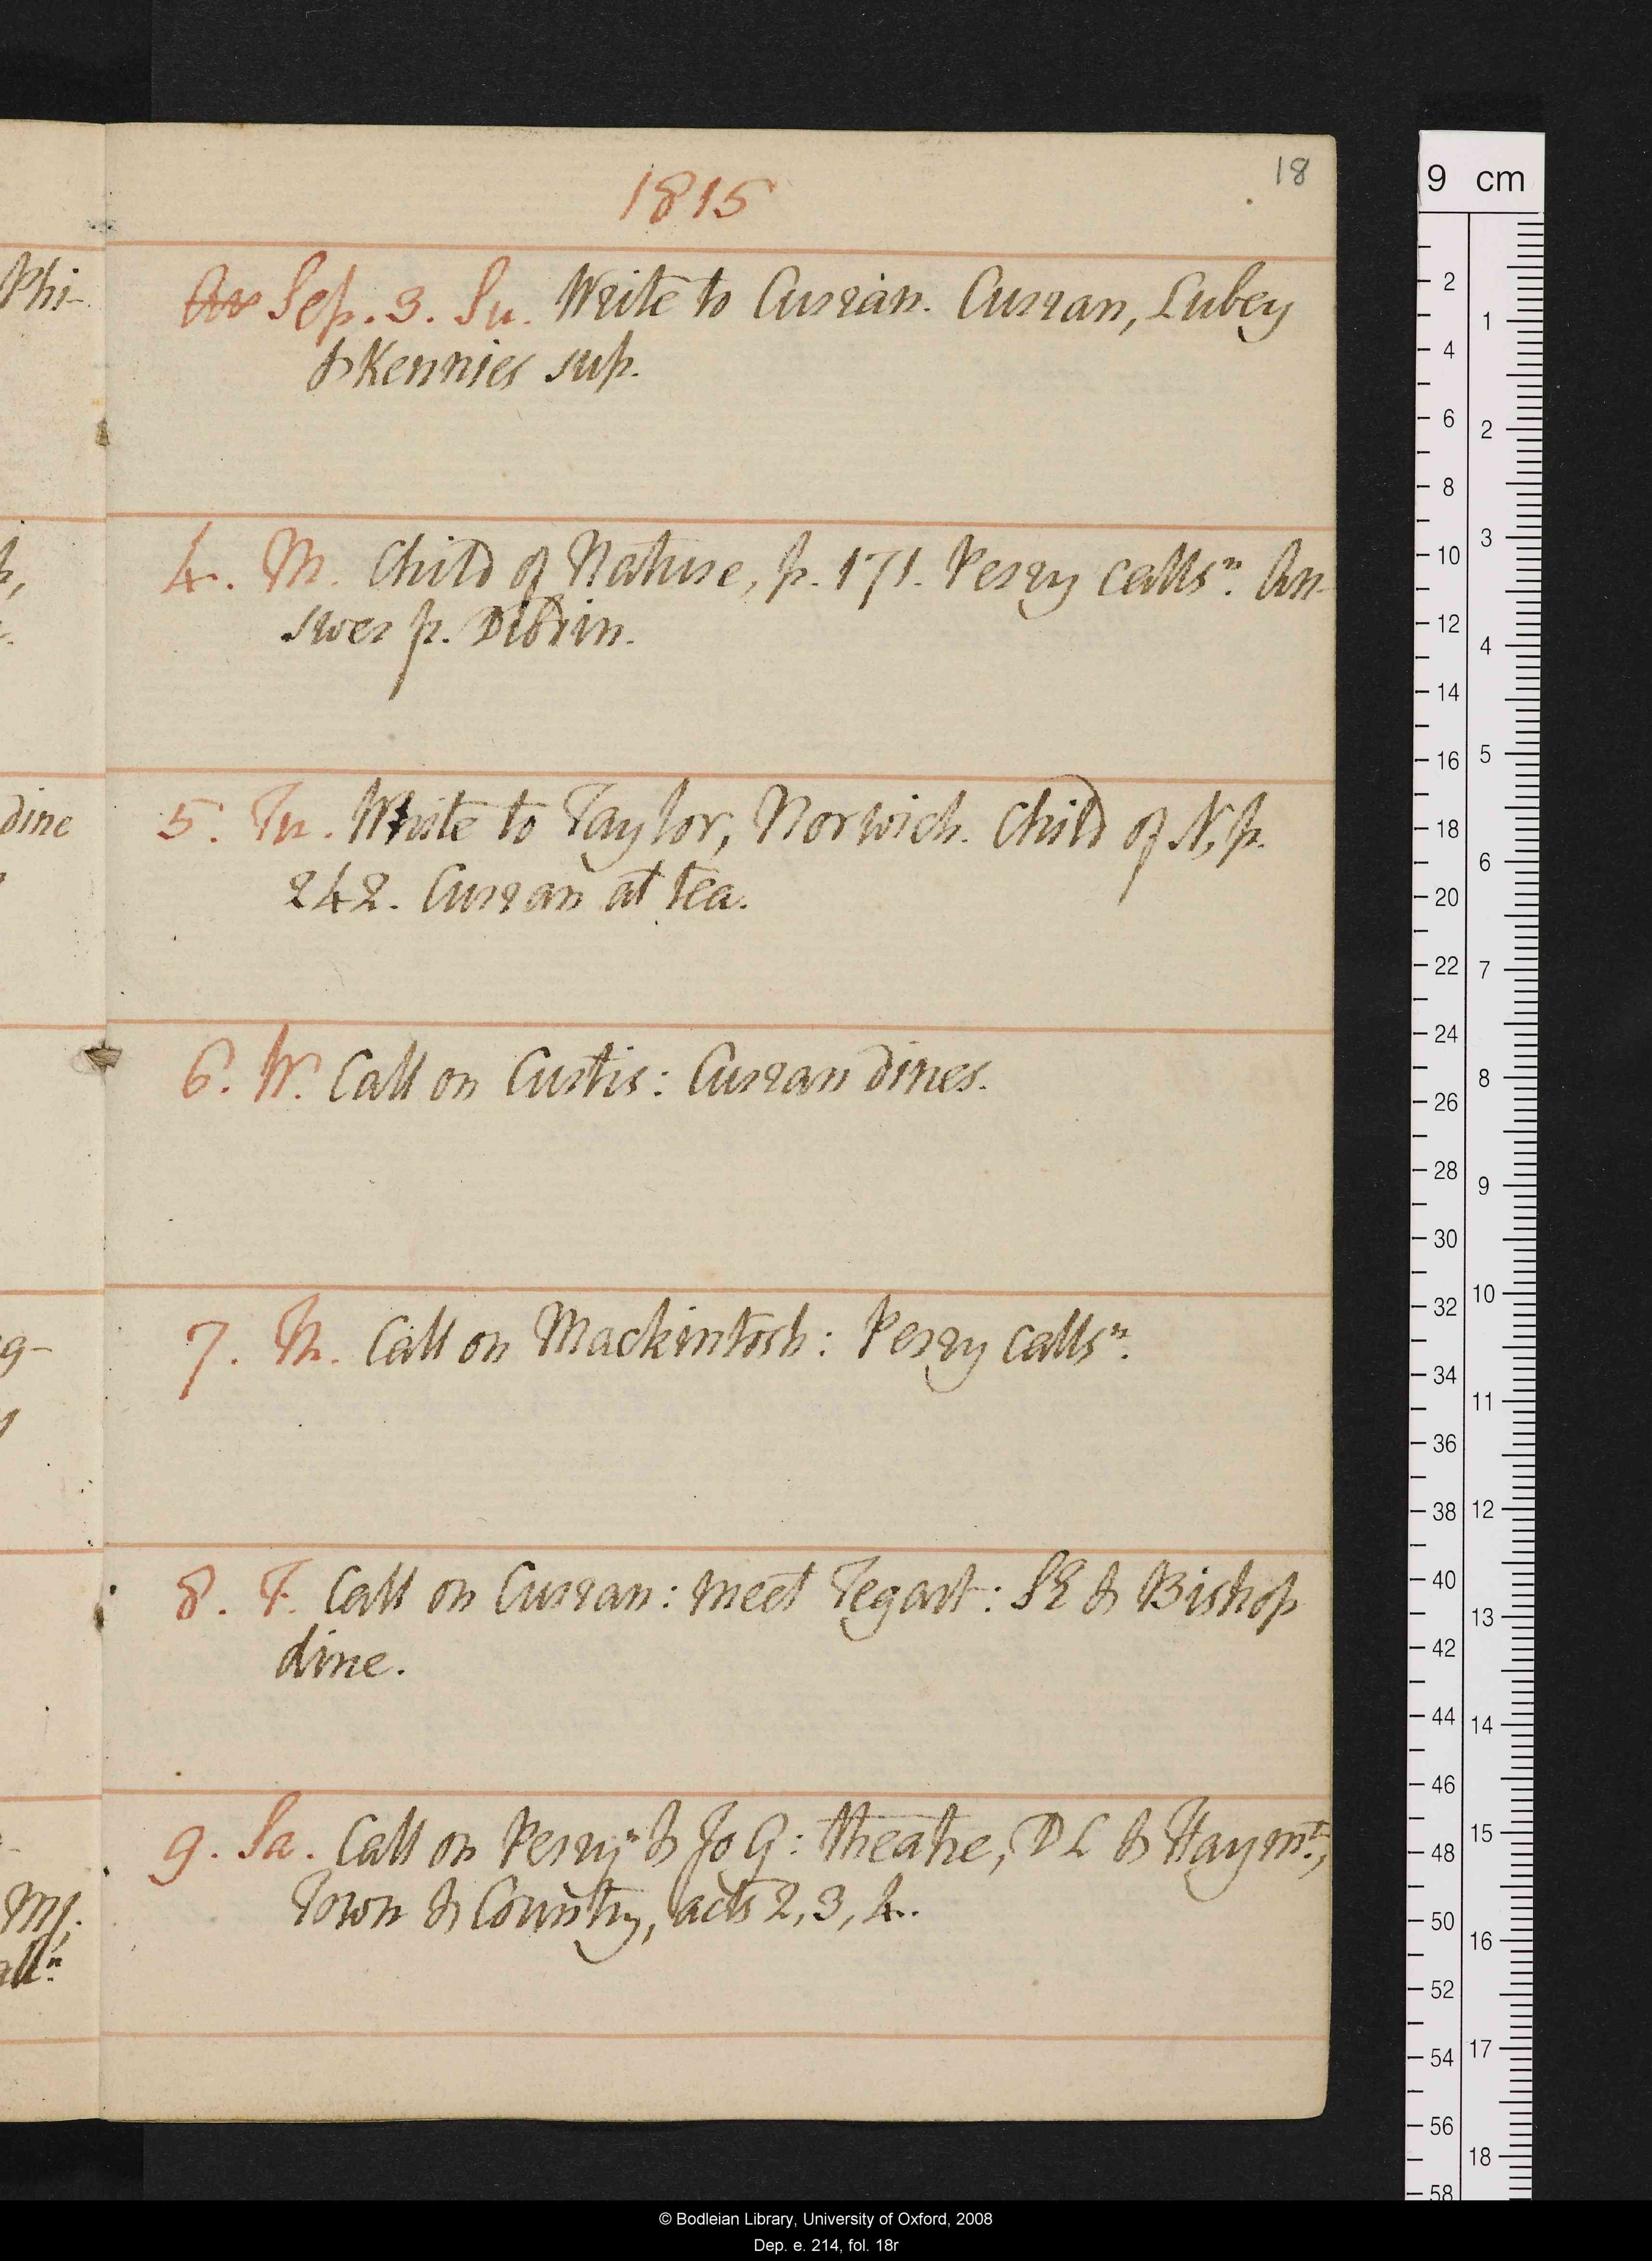 18
1815
Phi-
Au Sep. 3. Su. Write to Curran. Curran, Lubey
& Kennies sup.
4. M. Child of Nature, p. 171. Perry calls n. An-
swer p. Dibdin.
dine
5. Tu. Write to Taylor, Norwich. Child of N, p.
242. Curran at tea.
6. W. Call on Curtis: Curran dines.
7. Th. Call on Mackintosh: Perry calls n.
8. F. Call on Curran: meet Tegart: SE & Bishop
dine.
9. Sa. Call on Perry n & Jo G: theatre, DL & Haymt.,
Town & Country, acts 2, 3, 4.
9 cm
2
4
6
8
10
12
14
16
18
20
22
24
26
28
30
32
34
36
38
40
42
44
46
48
50
52
54
56
58
1
2
3
4
5
6
7
8
9
10
11
12
13
14
15
16
17
18
© Bodleian Library, University of Oxford, 2008
Dep. e. 214, fol. 18r